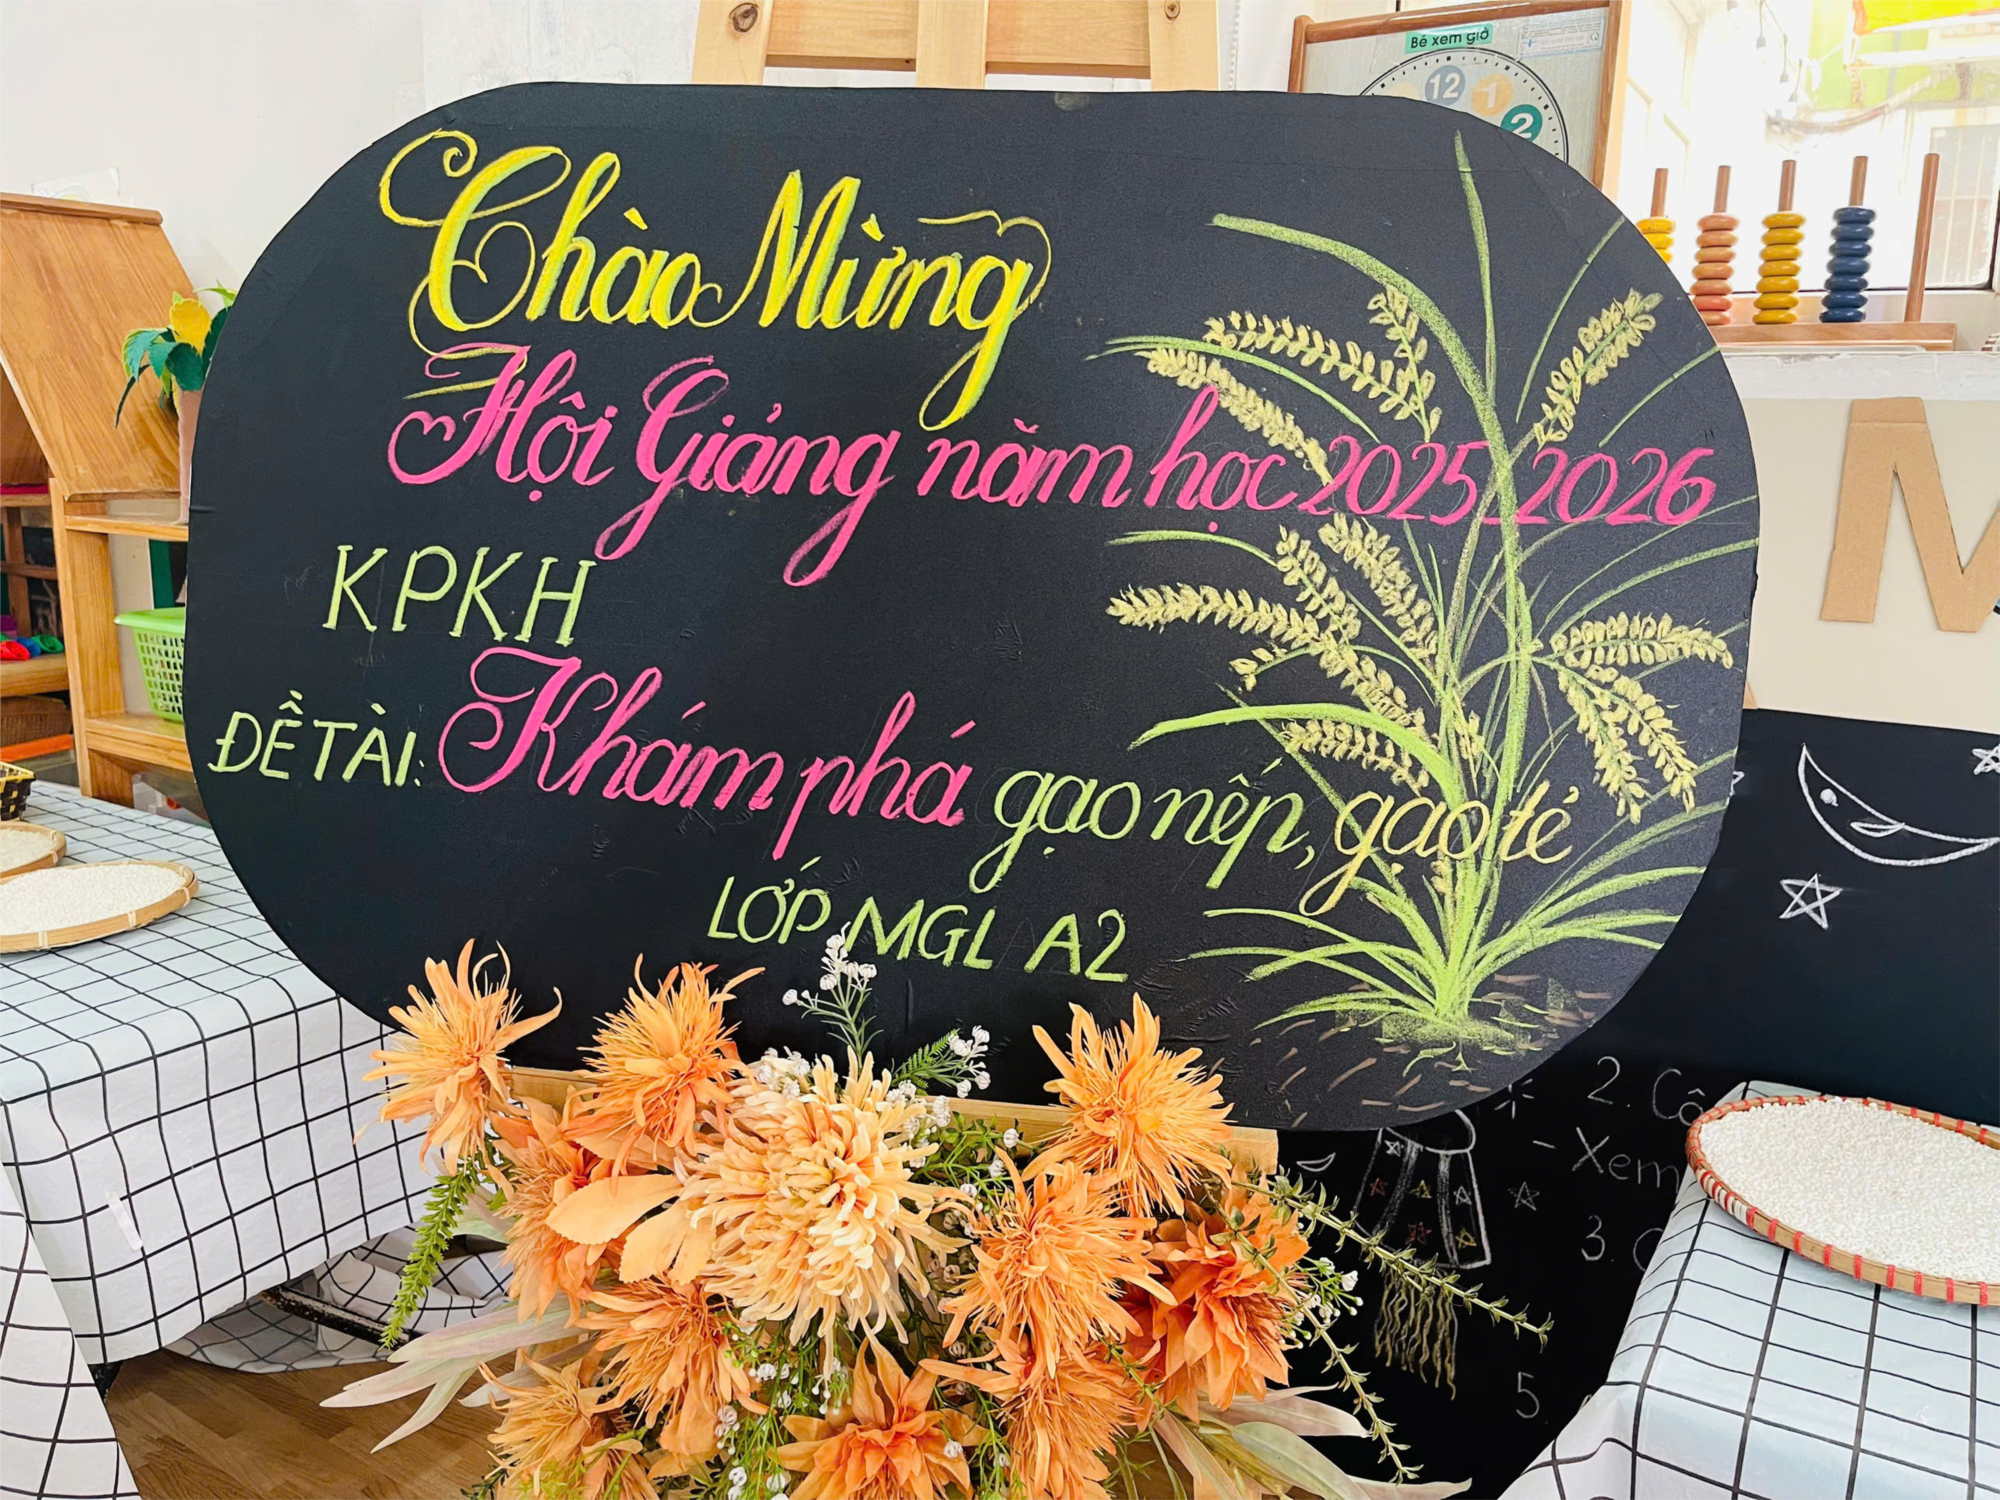 Bé xem giờ
12
1
2
Chào Mừng
Hội Giảng năm học 2025 2026
KPKH
ĐỀ TÀI: Khám phá gạo nếp, gạo tẻ
LỚP MGL A2
M
2. Cô
- Xem
3.
5